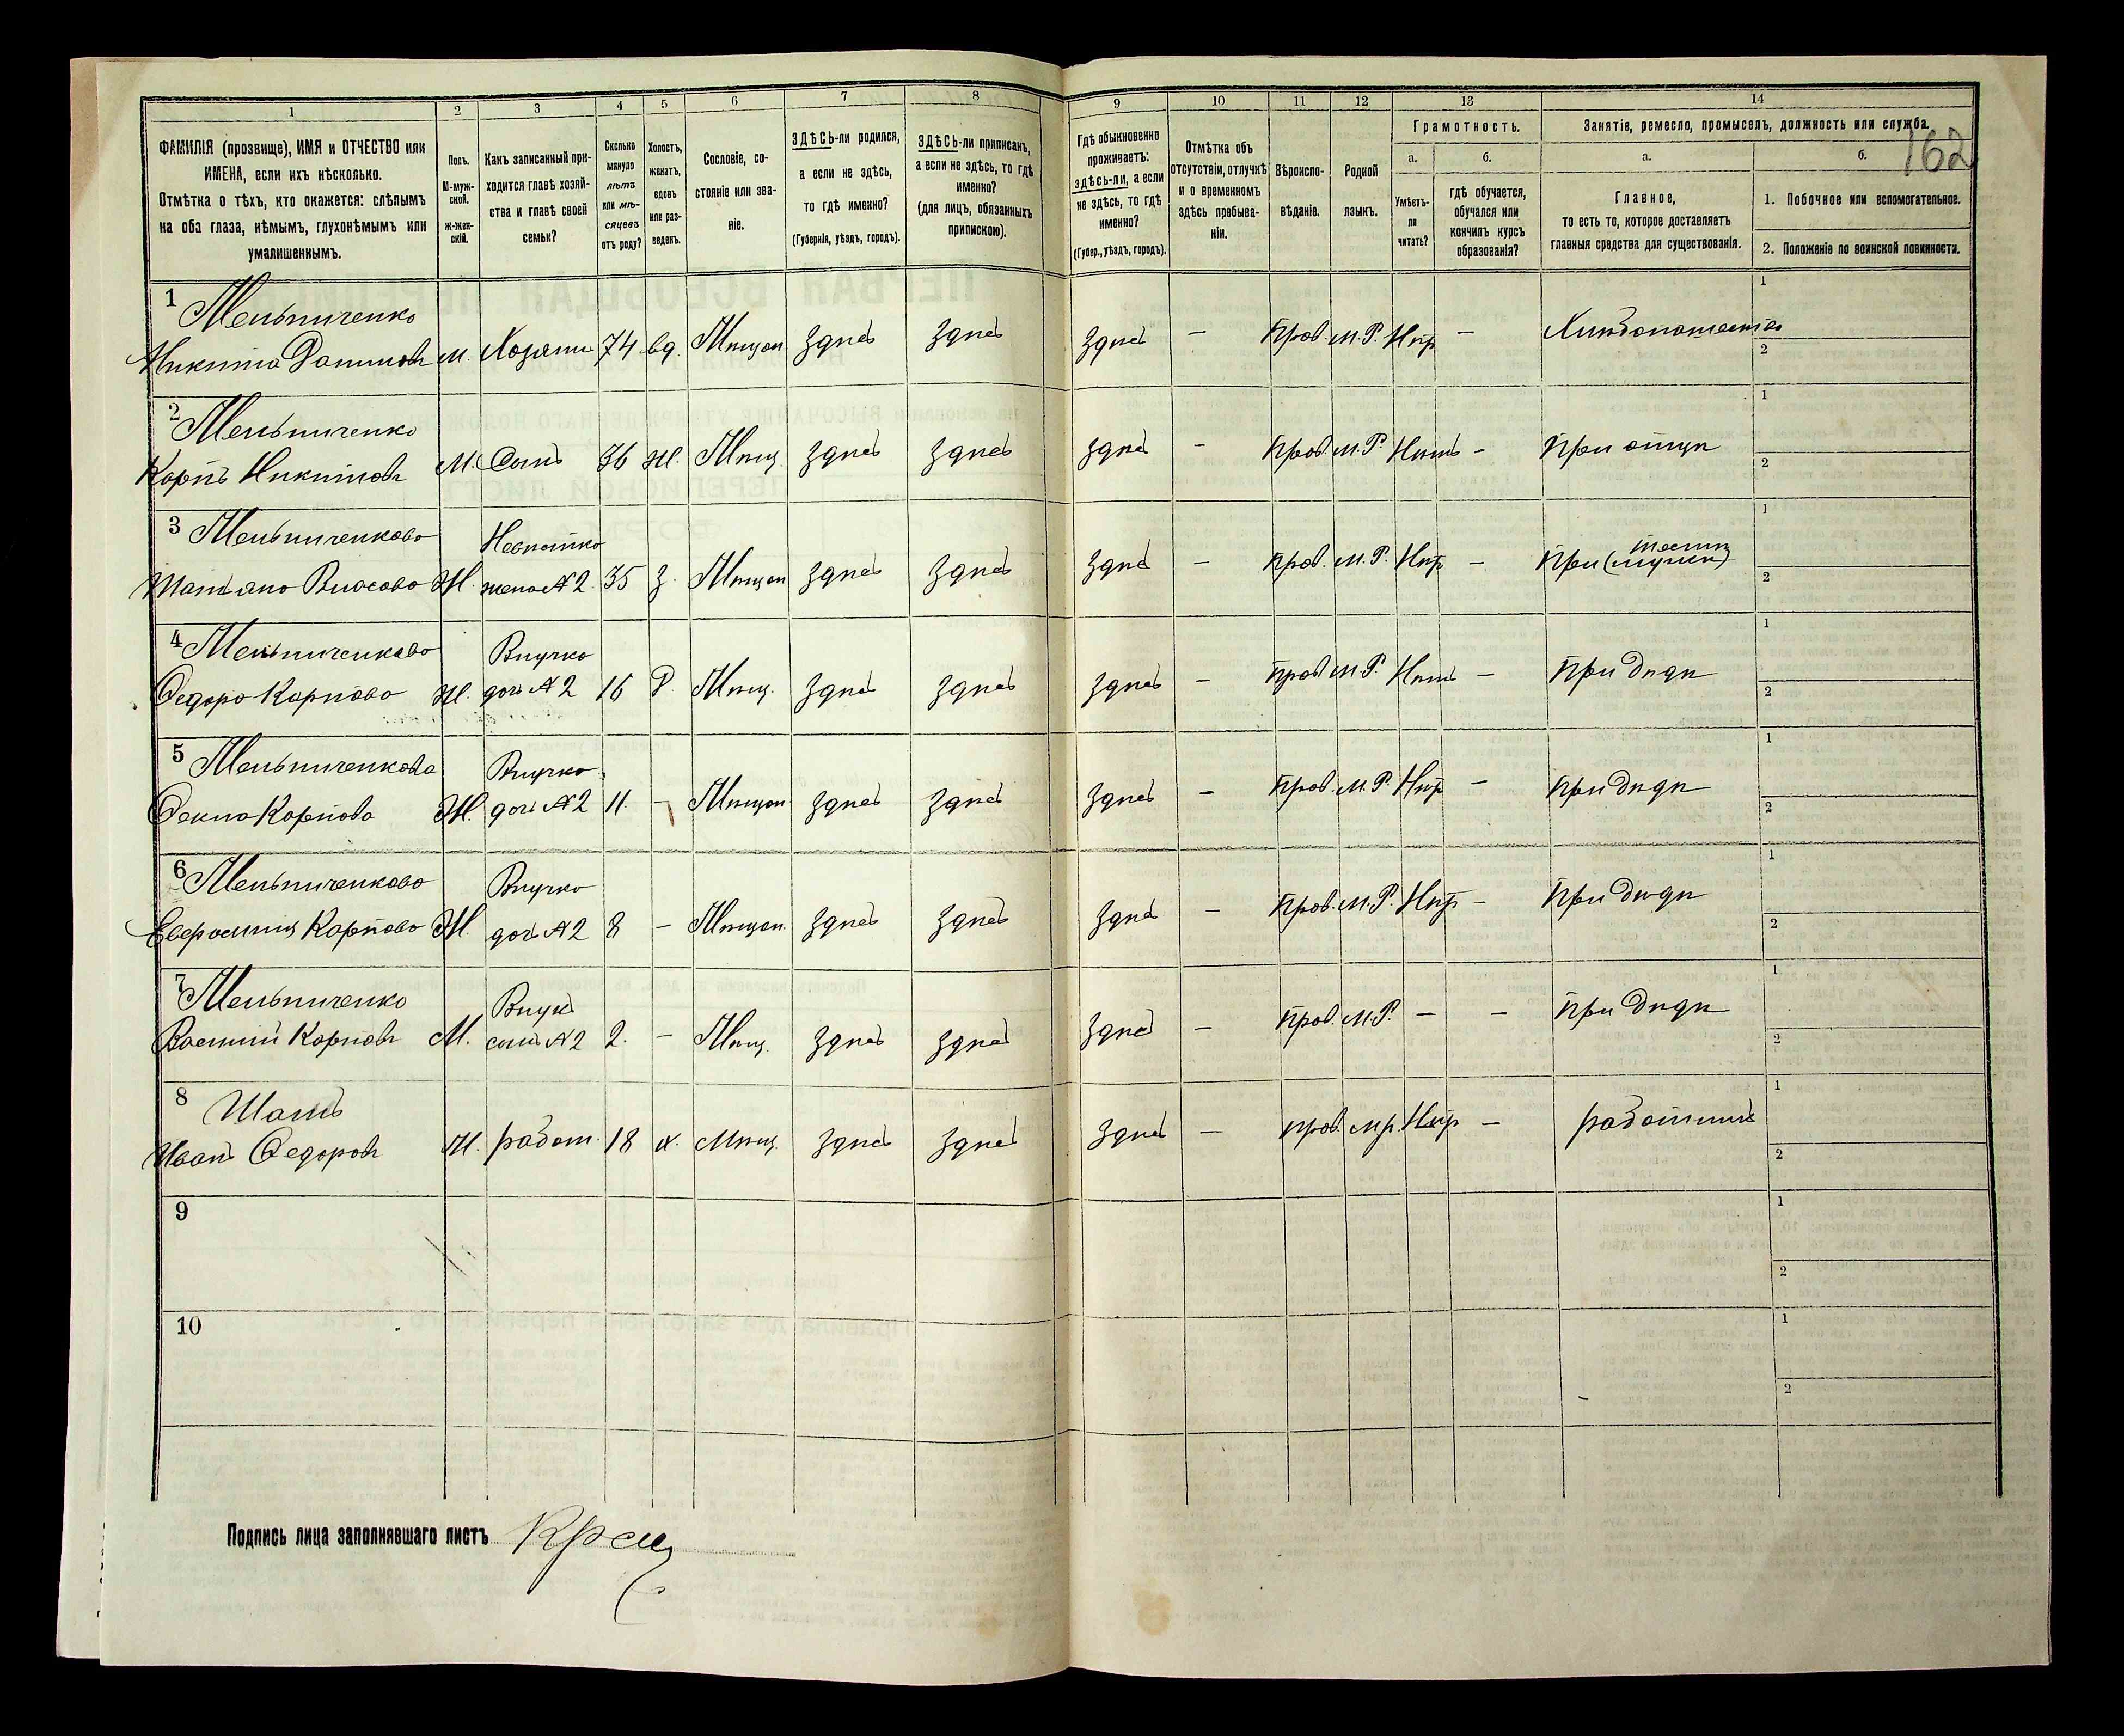 162
1 2 3 4 5 6 7 8 9 10 11 12 13 14
ФАМИЛІЯ (прозвище), ИМЯ и ОТЧЕСТВО или
ИМЕНА, если ихъ нѣсколько.
Отмѣтка о тѣхъ, кто окажется: слѣпымъ
на оба глаза, нѣмымъ, глухонѣмымъ или
умалишеннымъ.
Полъ.
М-муж-
ской.
Ж-жен-
скій.
Какъ записанный при-
ходится главѣ хозяй-
ства и главѣ своей
семьи?
Сколько
минуло
лѣтъ
или мѣ-
сяцевъ
отъ роду?
Холостъ,
женатъ,
вдовъ
или раз-
веденъ.
Сословіе, со-
стояніе или зва-
ніе.
ЗДѢСЬ-ли родился,
а если не здѣсь,
то гдѣ именно?
(Губернія, уѣздъ, городъ).
ЗДѢСЬ-ли приписанъ,
а если не здѣсь, то гдѣ
именно?
(для лицъ, обязанныхъ
припискою).
Гдѣ обыкновенно
проживаетъ:
здѣсь-ли, а если
не здѣсь, то гдѣ
именно?
(Губер., уѣздъ, городъ).
Отмѣтка объ
отсутствіи, отлучкѣ
и о временномъ
здѣсь пребыва-
ніи.
Вѣроиспо-
вѣданіе.
Родной
языкъ.
Грамотность.
а.
Умѣетъ-
ли
читать?
б.
гдѣ обучается,
обучался или
кончилъ курсъ
образованія?
Занятіе, ремесло, промыселъ, должность или служба.
а.
Главное,
то есть то, которое доставляетъ
главныя средства для существованія.
б.
1. Побочное или вспомогательное.
2. Положеніе по воинской повинности.
1 Мельниченко
Никита М. Хозяинъ 74 вд. Мѣщан здѣсь здѣсь здѣсь - Прав. М.Р. Нѣт - Хлѣбопашество
1
2
2 Мельниченко
Карпъ Никитовъ М. Сынъ 36 Ж. Мѣщ. здѣсь здѣсь здѣсь - Прав. М.Р. Нѣтъ - При отцѣ
1
2
3 Мельниченкова Невѣстка
Татьяна Власова Ж. жена №2. 35 З. Мѣщан здѣсь здѣсь здѣсь - Прав. М.Р. Нѣт - При (мужѣ)
1
2
4 Мельниченкова Внучка
Федора Карпова Ж. дочь №2 16 Р. Мѣщ. здѣсь здѣсь здѣсь - Прав М.Р. Нѣтъ - При дѣдѣ
1
2
5 Мельниченкова Внучка
Фекла Карпова Ж. дочь №2 11. - Мѣщан. здѣсь здѣсь здѣсь - Прав. М.Р. Нѣт - При дѣдѣ
1
2
6 Мельниченкова Внучка
Карпова Ж. дочь №2 8 - Мѣщан. здѣсь здѣсь здѣсь - Прав. М.Р. Нѣт - При дѣдѣ
1
2
7 Мельниченко Внукъ
Василій Карповъ М. сынъ №2 2. - Мѣщ. здѣсь здѣсь здѣсь - Прав. М.Р. - - При дѣдѣ
1
2
8
Иванъ Федоровъ М. работ. 18 х. Мѣщ. здѣсь здѣсь здѣсь - прав. м.р. Нѣт - работникъ
1
2
9
1
2
10
1
2
Подпись лица заполнявшаго листъ